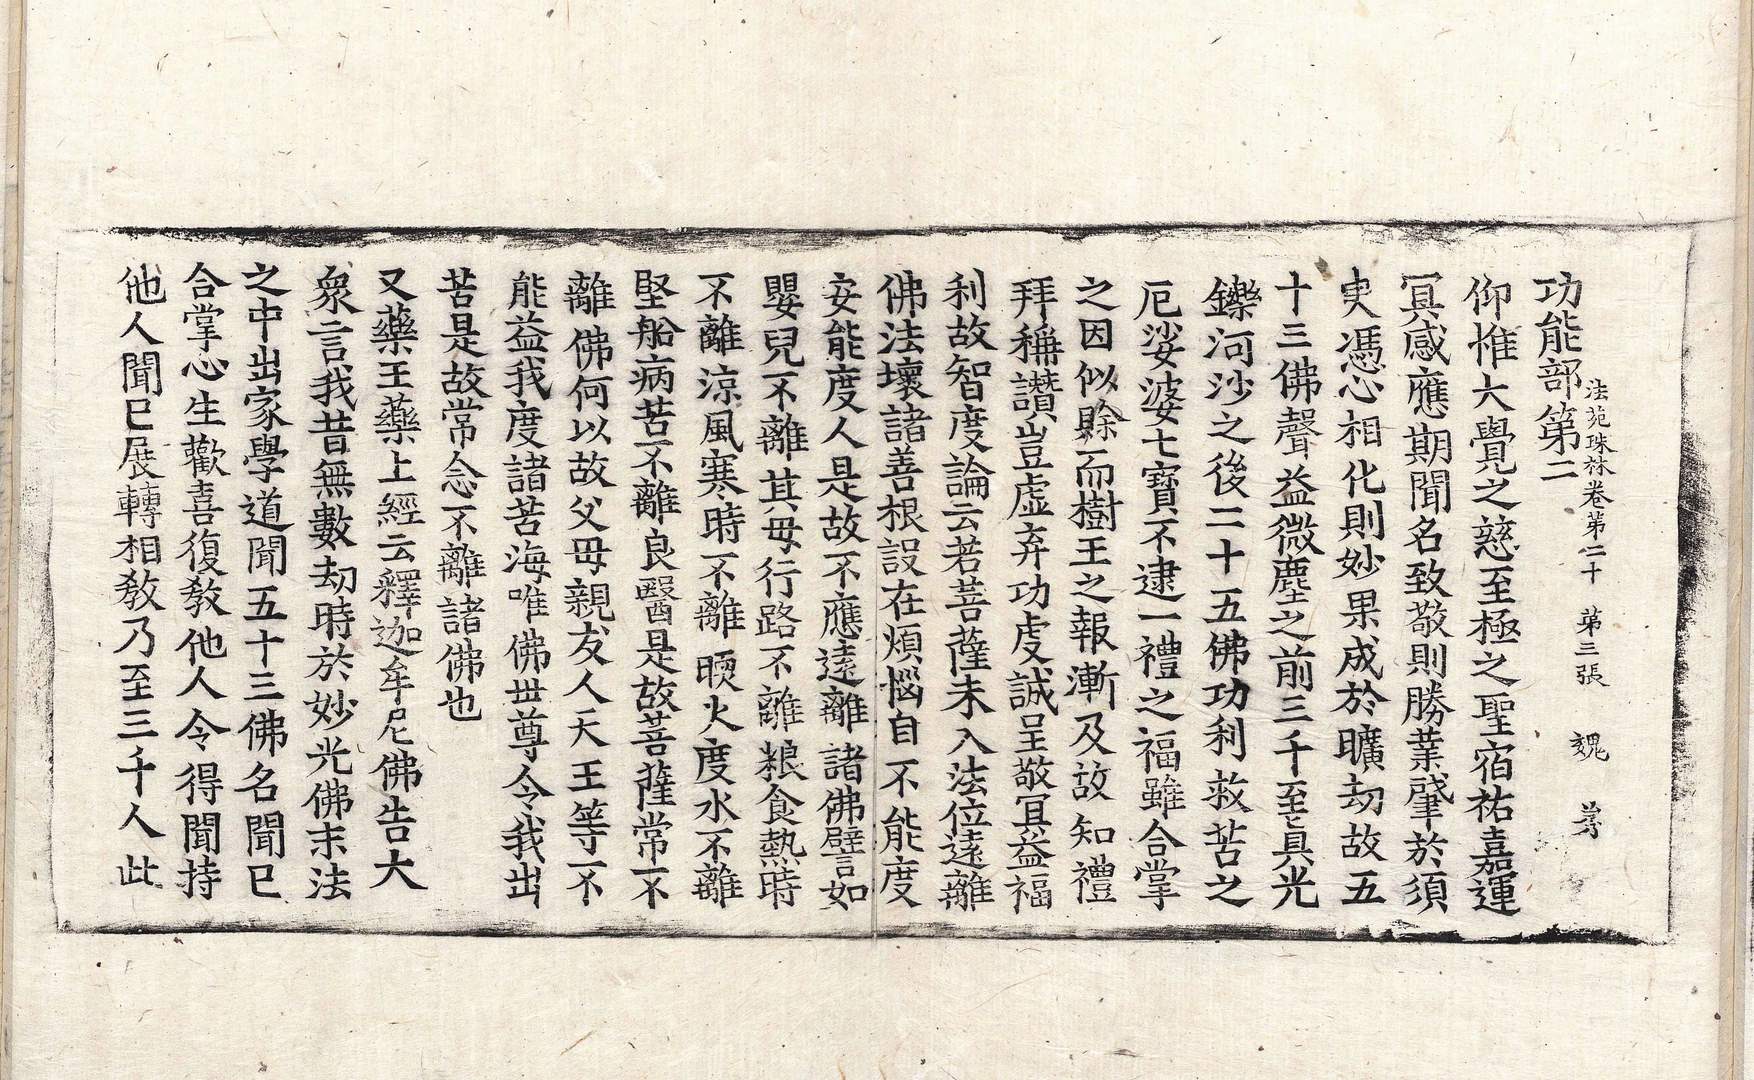 法苑珠林卷第二十　第三張　魏
功能部第二
仰惟大覺之慈至極之聖宿祐嘉運
冥感應期聞名致敬則勝業肇於須
臾憑心相化則妙果成於曠劫故五
十三佛聲益微塵之前三千至真光
鑠河沙之後二十五佛功利救苦之
厄娑婆七寶不逮一禮之福雖合掌
之因似賖而樹王之報漸及故知禮
拜稱讚豈虛弃功虔誠呈敬冝益福
利故智度論云若菩薩未入法位遠離
佛法壞諸善根設在煩惱自不能度
安能度人是故不應遠離諸佛譬如
嬰兒不離其母行路不離粮食熱時
不離涼風寒時不離㬉火度水不離
堅船病苦不離良醫是故菩薩常不
離佛何以故父母親友人天王等不
能益我度諸苦海唯佛世尊令我出
苦是故常念不離諸佛也
又藥王藥上經云釋迦牟尼佛告大
衆言我昔無數劫時於妙光佛末法
之中出家學道聞五十三佛名聞已
合掌心生歡喜復教他人令得聞持
他人聞已展轉相教乃至三千人此